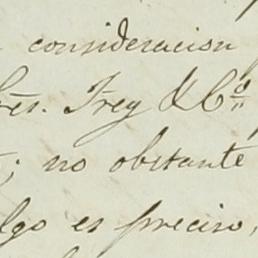 consideracion
res. Frey & Cº
; no obstante
lgo es preciso,